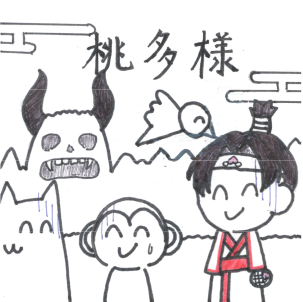 桃多様